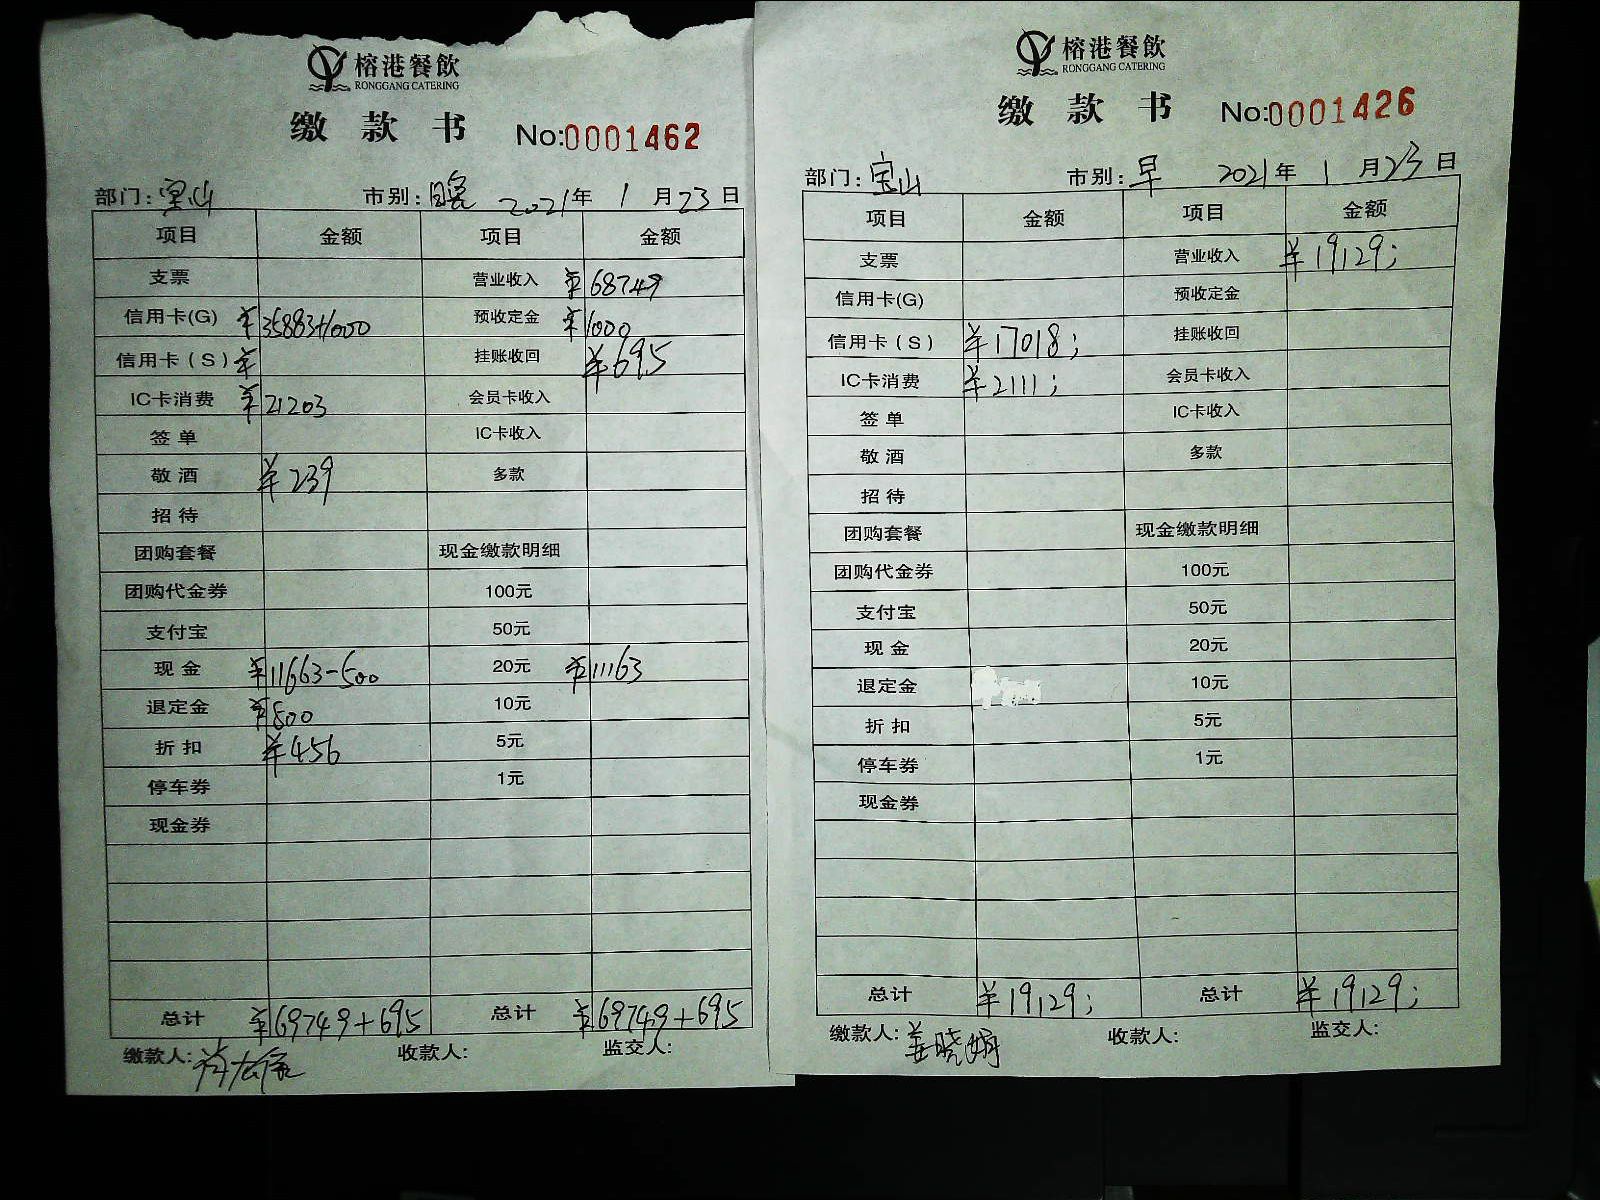 榕港餐飲
RONGGANG CATERING
缴款书 No:0001462
部门: 宝山 市别: 晚 2021年 1月23日
项目 金额 项目 金额
支票 营业收入 ¥68749
信用卡(G) ¥35883+1000 预收定金 ¥1000
信用卡(S) ¥ 挂账收回 ¥695
IC卡消费 ¥21203 会员卡收入
签单 IC卡收入
敬酒 ¥239 多款
招待
团购套餐 现金缴款明细
团购代金券 100元
支付宝 50元
现金 ¥11663-500 20元 ¥11163
退定金 ¥500 10元
折扣 ¥456 5元
停车券 1元
现金券
总计 ¥69749+695 总计 ¥69749+695
缴款人: 收款人: 监交人:
榕港餐飲
RONGGANG CATERING
缴款书 No:0001426
部门: 宝山 市别: 早 2021年 1月23日
项目 金额 项目 金额
支票 营业收入 ¥19129;
信用卡(G) 预收定金
信用卡(S) ¥17018; 挂账收回
IC卡消费 ¥2111; 会员卡收入
签单 IC卡收入
敬酒 多款
招待
团购套餐 现金缴款明细
团购代金券 100元
支付宝 50元
现金 20元
退定金 10元
折扣 5元
停车券 1元
现金券
总计 ¥19129; 总计 ¥19129;
缴款人: 姜晓娟 收款人: 监交人: